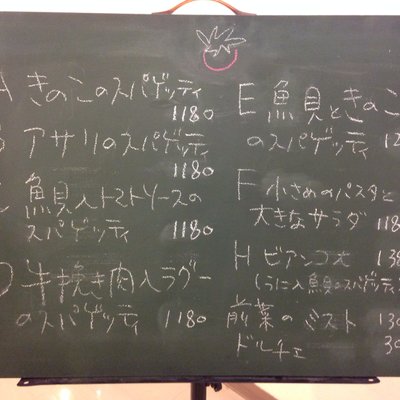 A きのこのスパゲッティ
1180
アサリのスパゲッティ
1180
魚貝入トマトソースの
スパゲッティ 1180
D 牛挽き肉入ラグー
のスパゲッティ 1180
E 魚貝ときのこ
のスパゲッティ
F 小さめのパスタと
大きなサラダ 118
H ビアンコ
魚貝のスパゲッティ
前菜のミスト 130
ドルチェ 30